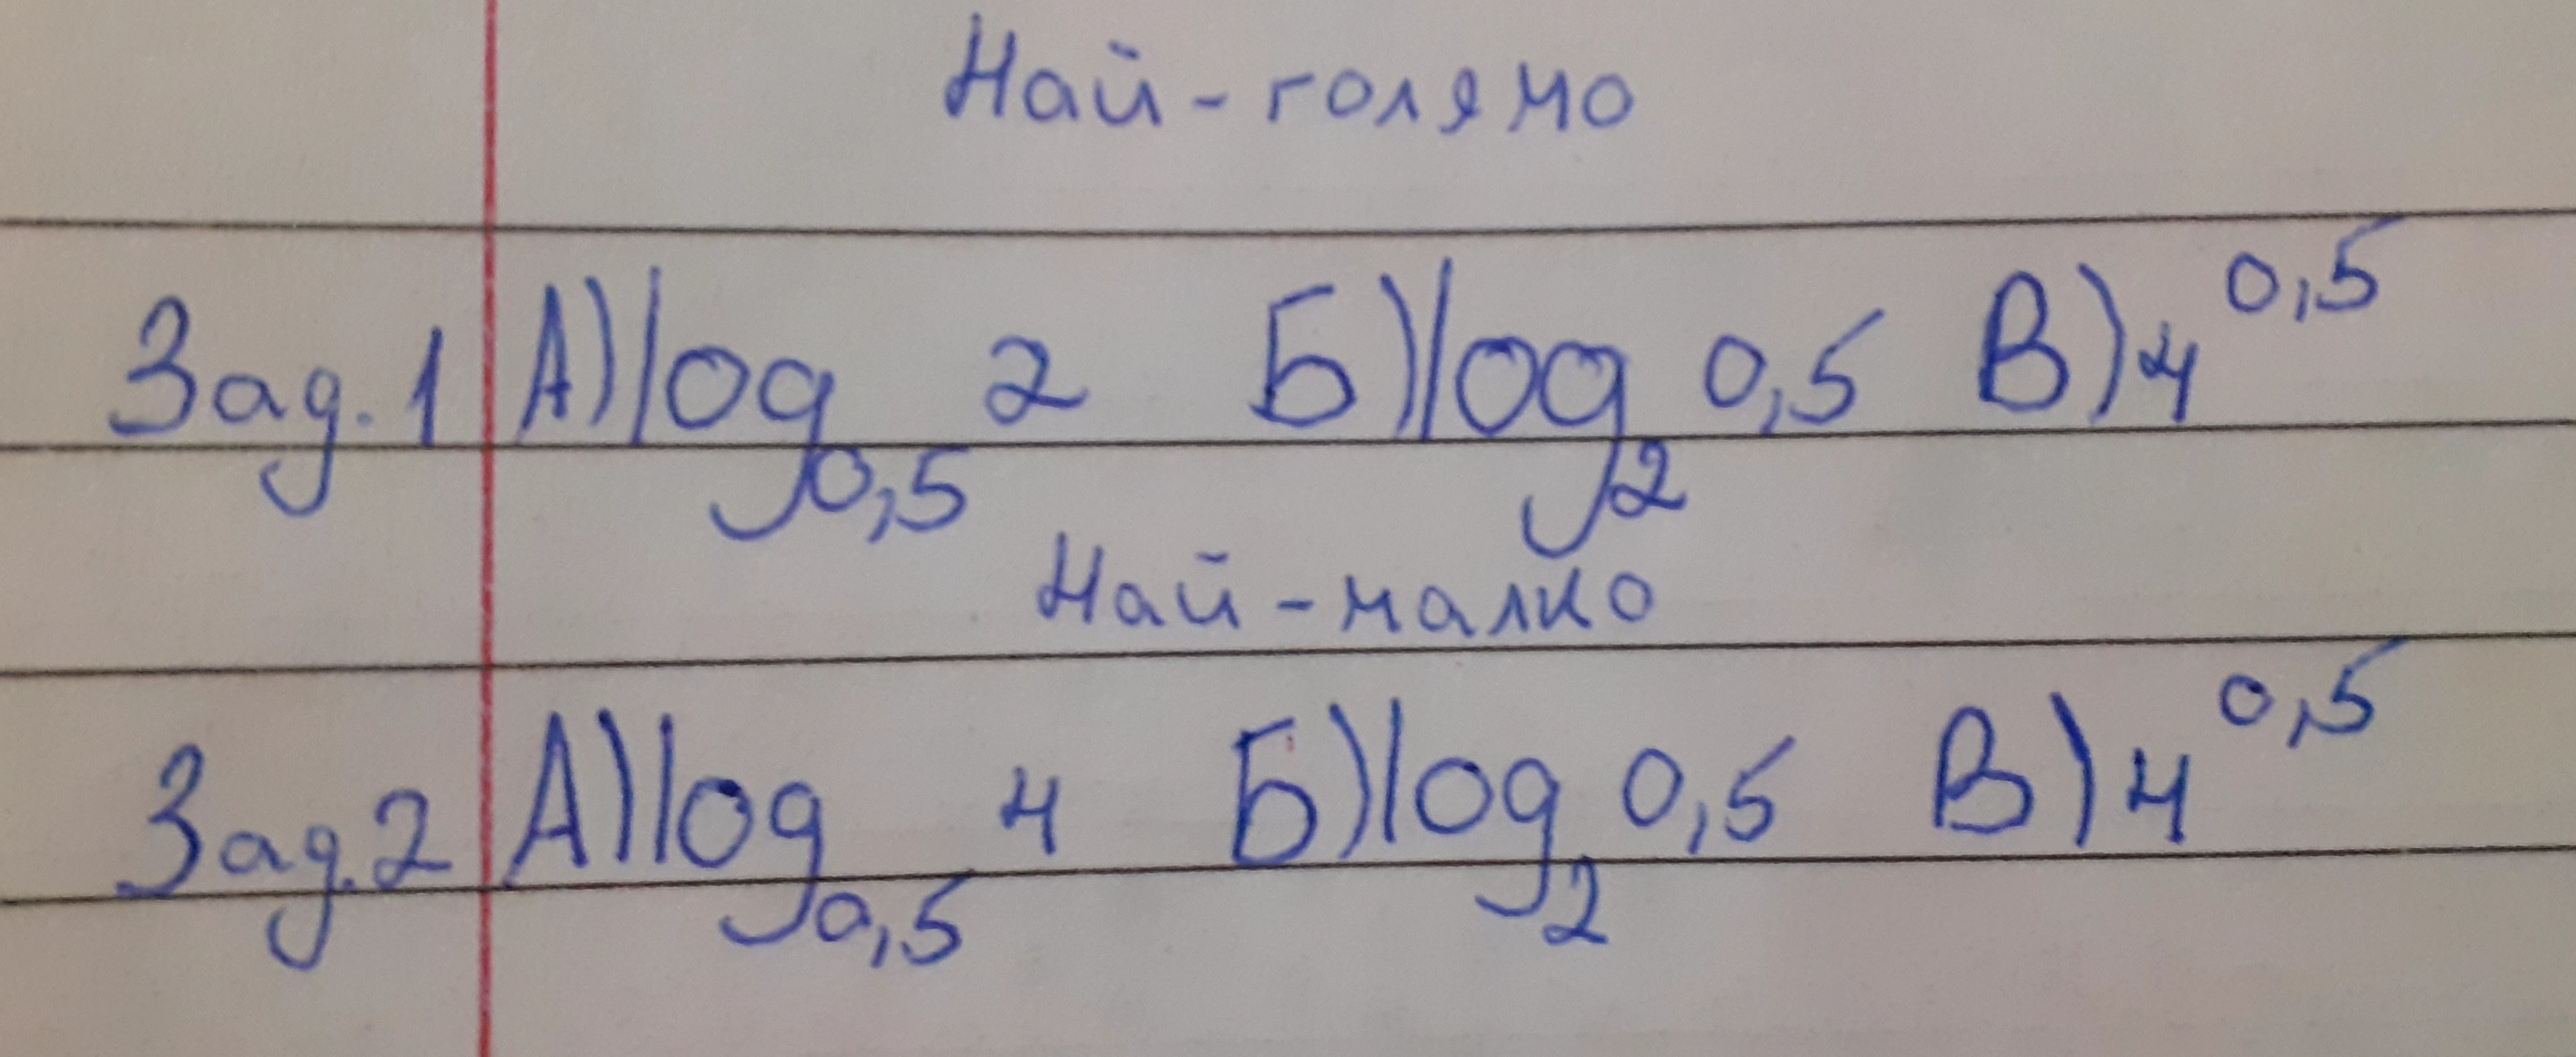 Най-голямо
Зад. 1 А) log₀,₅ 2 Б) log₂ 0,5 В) 4^0,5
Най-малко
Зад. 2 А) log₀,₅ 4 Б) log₂ 0,5 В) 4^0,5